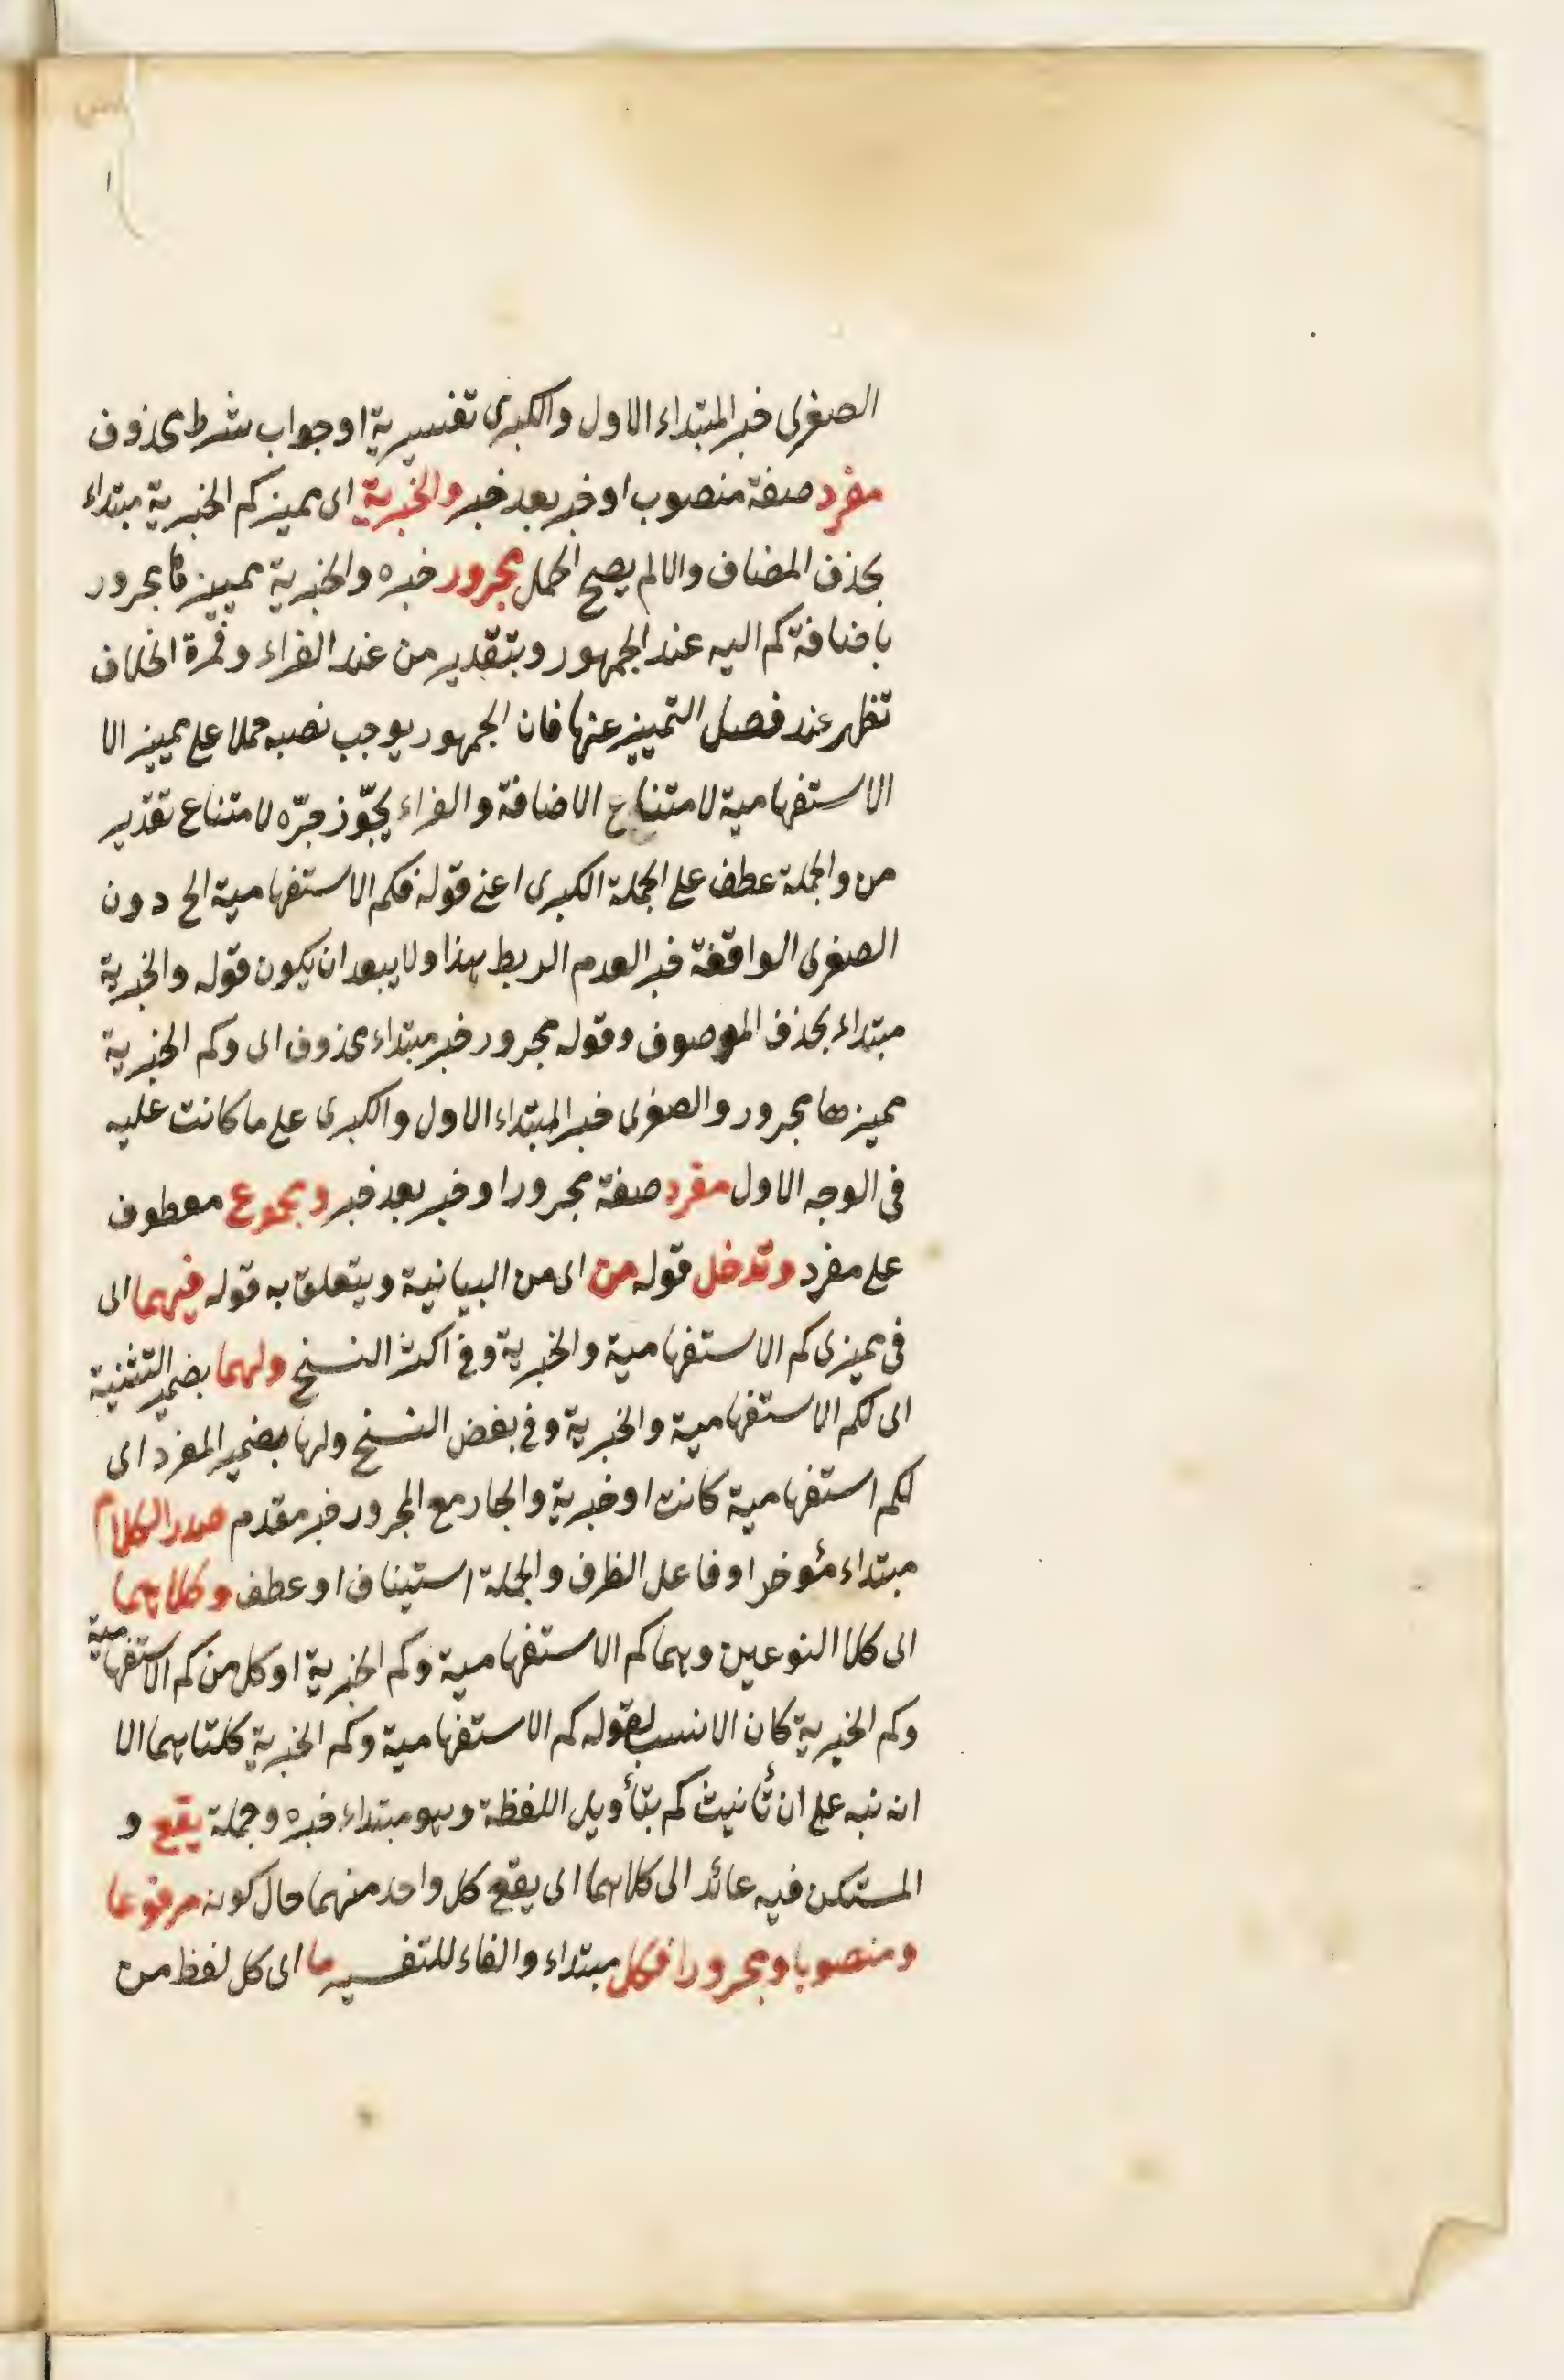 الصغرى خبر المبتداء الاول والكبرى تفسيرية او جواب شرط محذوف
مفرد صفة منصوب او خبر بعد خبر والخبرية اى مميز كم الخبرية مبتداء
بحذف المضاف والا لم يصح الحمل مجرور خبره والخبرية مميزها مجرور
باضافة كم اليه عند الجمهور وبتقدير من عند الفراء وثمرة الخلاف
تظهر عند فصل التمييز عنها فان الجمهور يوجب نصبه حملا على مميز الا
الاستفهامية لامتناع الاضافة والفراء يجوّز جرّه لامتناع تقدير
من والجملة عطف على الجملة الكبرى اعنى قوله فكم الاستفهامية الخ دون
الصغرى الواقعة خبر العدم الربط هذا ولا يبعد ان يكون قوله والخبرية
مبتداء بحذف الموصوف وقوله مجرور خبر مبتداء محذوف اى وكم الخبرية
مميزها مجرور والصغرى خبر المبتداء الاول والكبرى على ما كانت عليه
فى الوجه الاول مفرد صفة مجرور او خبر بعد خبر ومجموع معطوف
على مفرد وتدخل قوله من اى من البيانية ويتعلق به قوله فيهما اى
فى مميزى كم الاستفهامية والخبرية وفى اكثر النسخ ولهما بضمير التثنية
اى لكم الاستفهامية والخبرية وفى بعض النسخ ولها بضمير المفرد اى
لكم استفهامية كانت او خبرية والجار مع المجرور خبر مقدم صدر الكلام
مبتداء مؤخر او فاعل الظرف والجملة استيناف او عطف وكلاهما
اى كلا النوعين وهما كم الاستفهامية وكم الخبرية او كل من كم الاستفهامية
وكم الخبرية كان الانسب لقوله كم الاستفهامية وكم الخبرية كلتاهما الا
انه نبه على ان تأنيث كم بتأويل اللفظة وهو مبتداء خبره وجملة يقع و
المستكن فيه عائد الى كلاهما اى يقع كل واحد منهما حال كونه مرفوعا
ومنصوبا ومجرورا فكل مبتداء والفاء للتفسير ما اى كل لفظ من